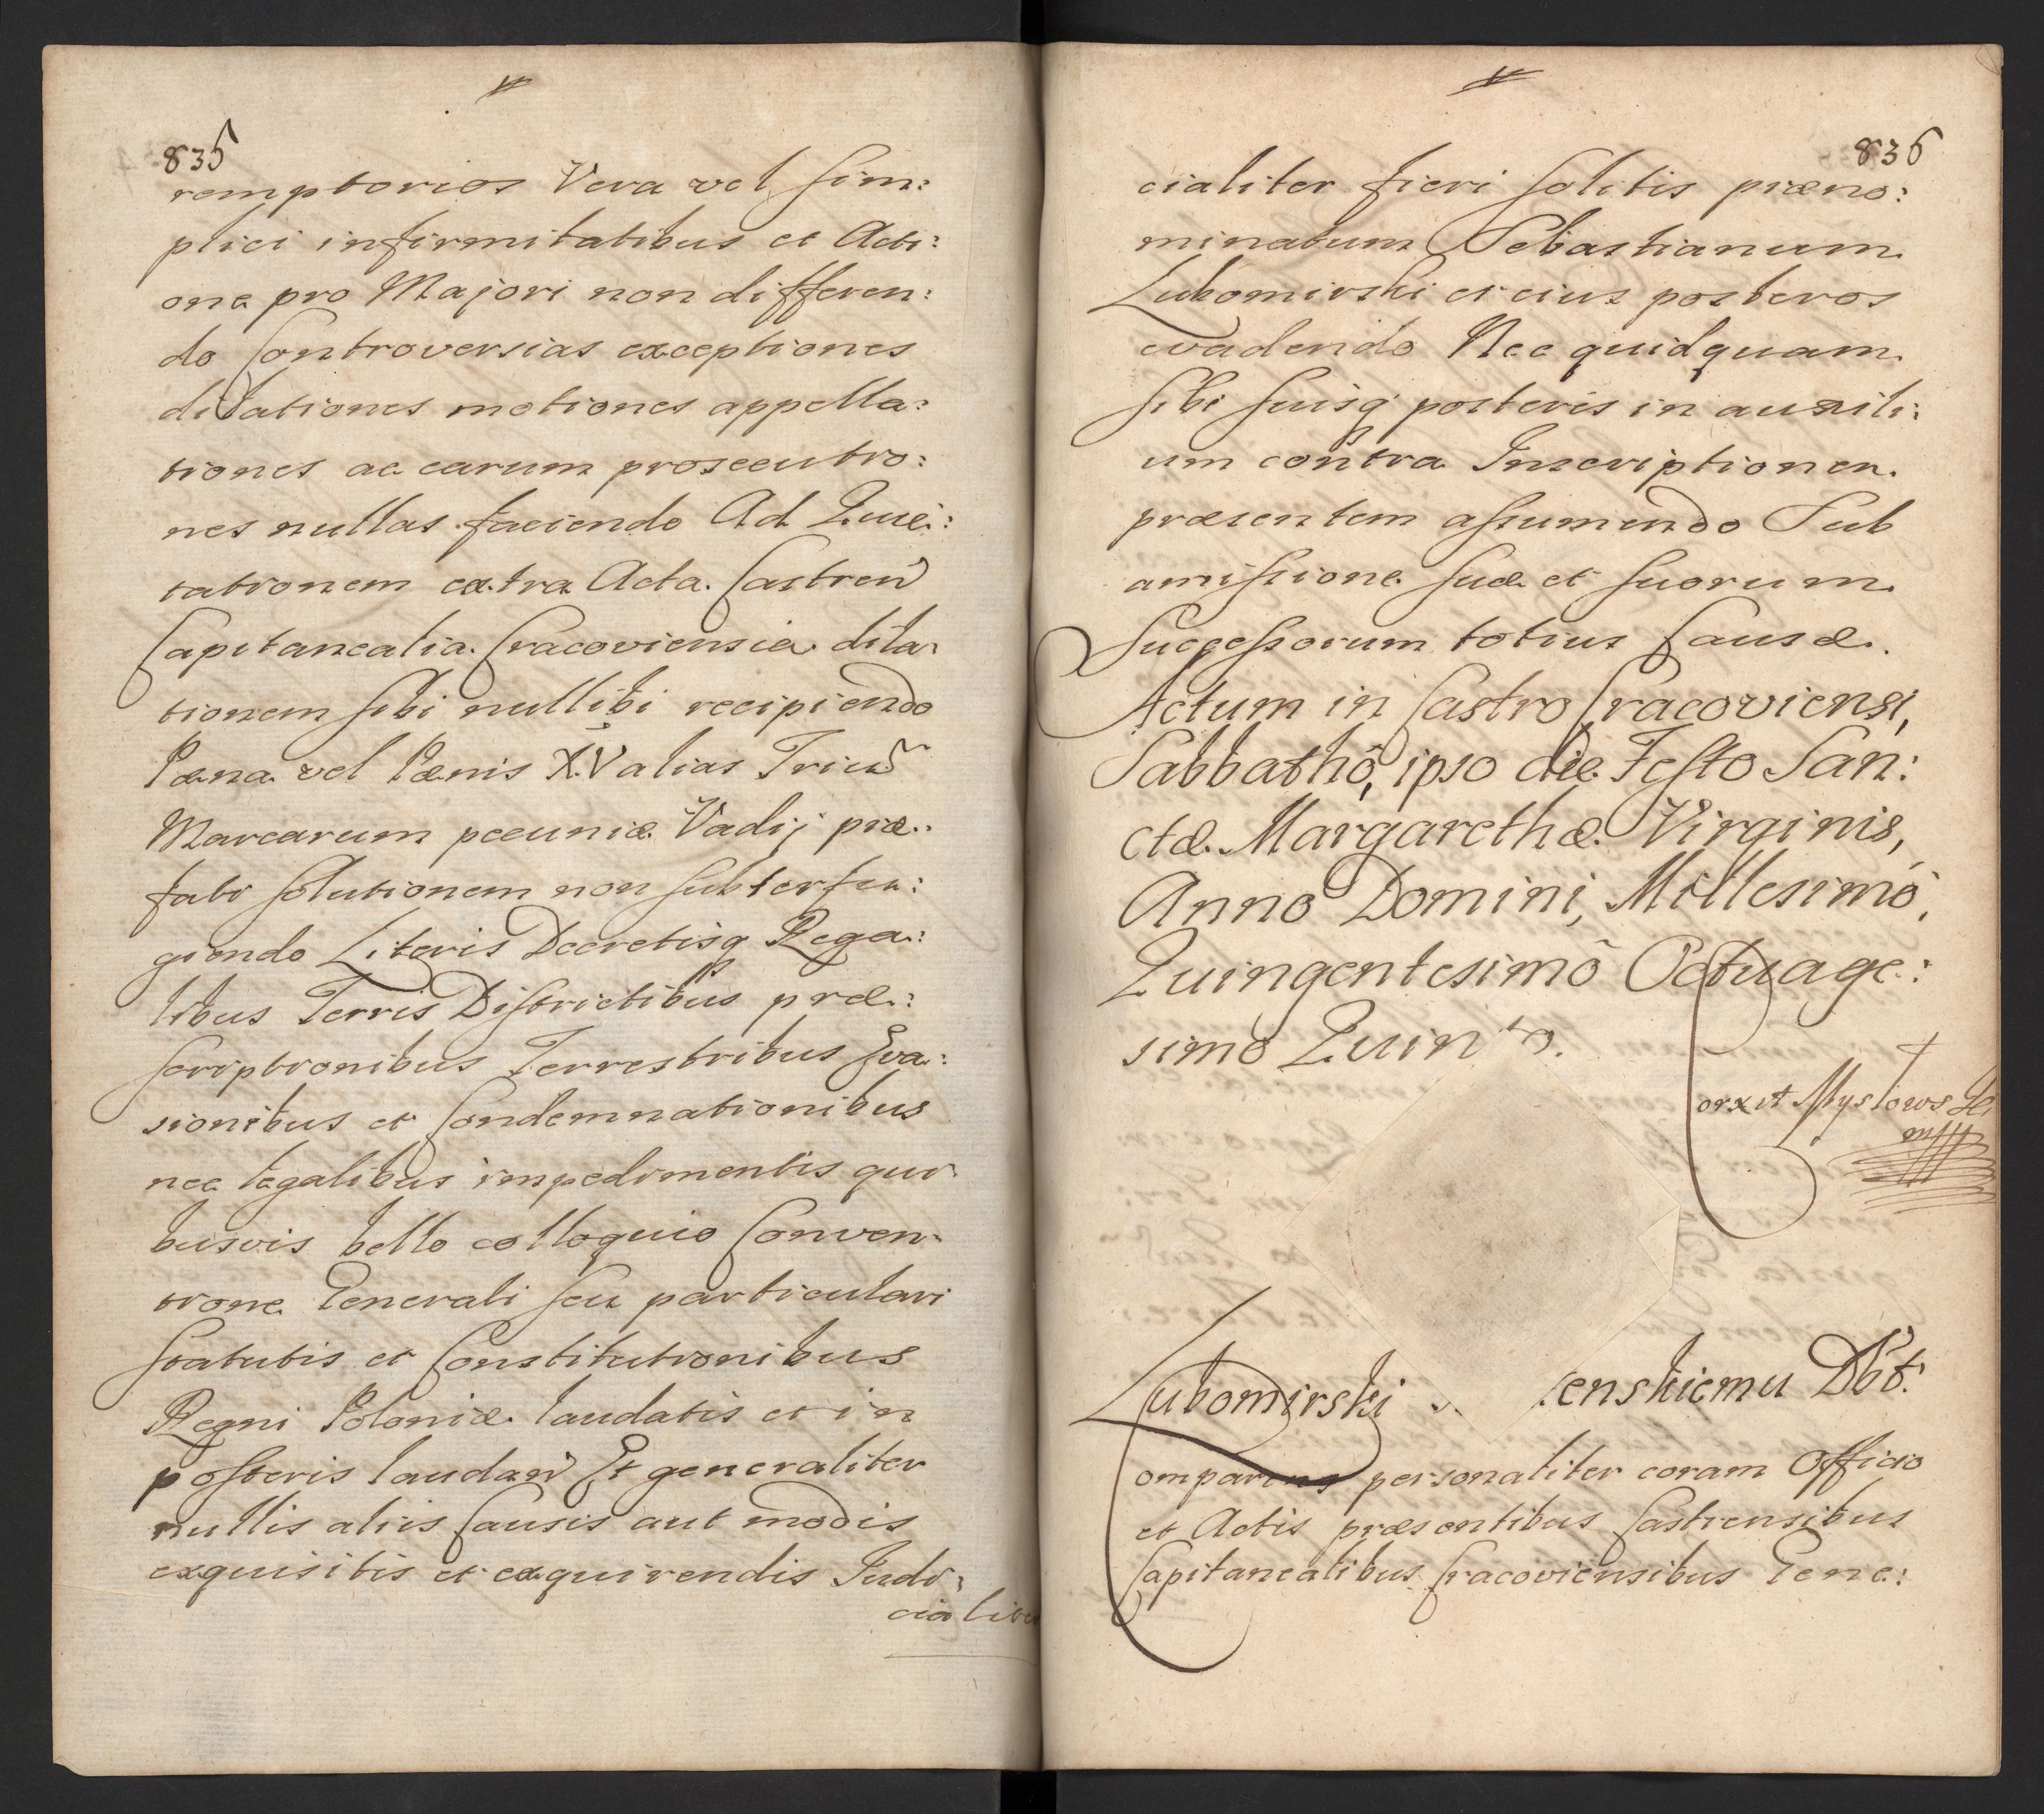 835
remptorios Vera vel sim:
plici infirmitatibus et Acti:
one pro Majori non differen:
do Controversias exceptiones
dilationes motiones appella:
tiones ac earum prosecutio:
nes nullas faciendo Ad Quie:
tationem extra Acta Castren
Capitanealia Cracoviensia dila:
tionem sibi nullibi recipiendo
Pæna vel Pænis XV alias Trium
Marcarum pecuniæ Vadij præ:
fati solutionem non subterfu:
giendo Literis Decretisq Rega:
libus Terris Districtibus præ:
scriptionibus Terrestribus Eva:
sionibus et Condemnationibus
nec legalibus impedimentis qui:
busvis bello colloquio Conven:
tione Generali seu particulari
statutis et Constitutionibus
Regni Poloniæ laudatis et in
posteris laudan Et generaliter
nullis aliis Causis aut modis
exquisitis et exquirendis Judi:
cialiter
836
cialiter fieri solitis præno:
minatum Sebastianum
Lubomirski et eius posteros
evadendo Nec quidquam
sibi suisq posteris in auxili:
um contra Inscriptionem
præsentem assumendo Sub
amissione suæ et suorum
Successorum totius Causæ.
Actum in Castro Cracoviensi,
Sabbathô, ipso die Festo San:
ctæ Margarethæ Virginis,
Anno Domini, Millesimô,
Quingentesimô Octuage:
simo Quinto.
orxit Mysłowski
Lubomirski enskiemu Dbt.
Comparens personaliter coram Officio
et Actis præsentibus Castrensibus
Capitanealibus Cracoviensibus Gene: